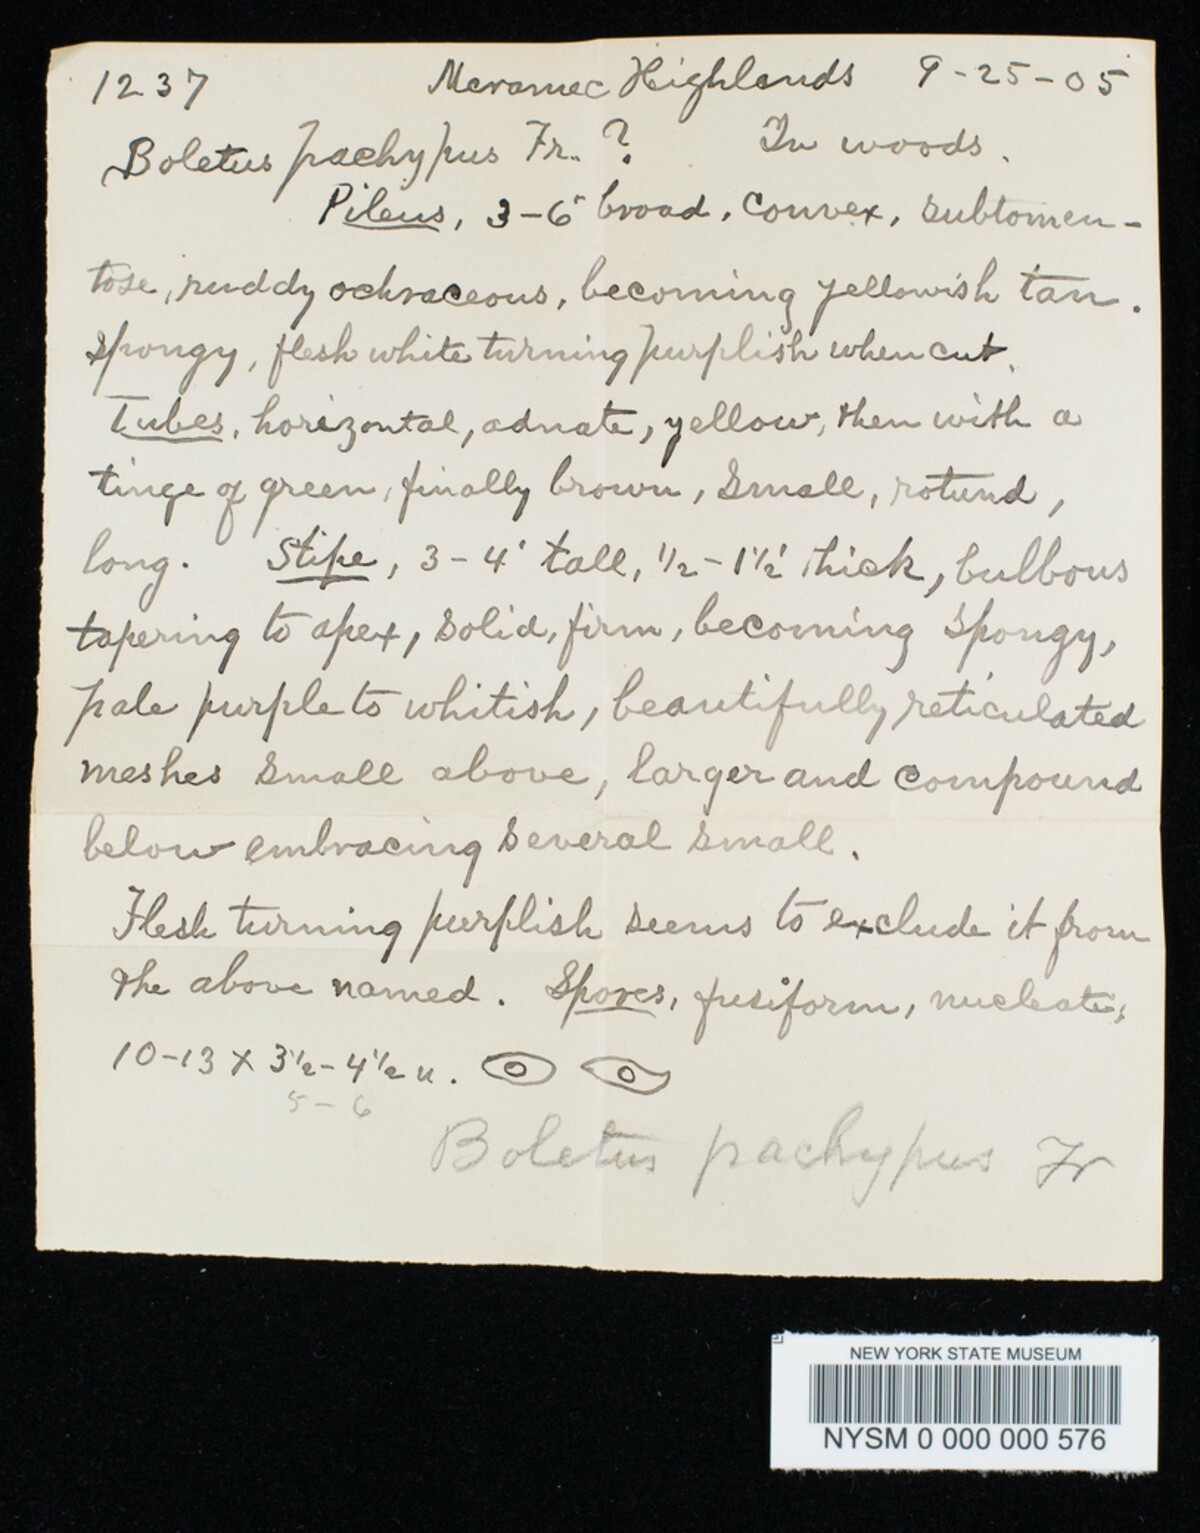 1237 Meramec Highlands 9-25-05
Boletus pachypus Fr. ? In woods.
Pileus, 3-6' broad, convex, subtomen-
tose, ruddy ochraceous, becoming yellowish tan.
Spongy, flesh white turning purplish when cut.
Tubes, horizontal, adnate, yellow, then with a
tinge of green, finally brown, small, rotund,
long. Stipe, 3-4' tall, 1/2-1 1/2' thick, bulbous
tapering to apex, solid, firm, becoming spongy,
pale purple to whitish, beautifully reticulated
meshes small above, larger and compound
below embracing several small.
Flesh turning purplish seems to exclude it from
the above named. Spores, fusiform, nucleate,
10-13 x 3 1/2-4 1/2 u.
5-6
Boletus pachypus Fr
NEW YORK STATE MUSEUM
NYSM 0 000 000 576